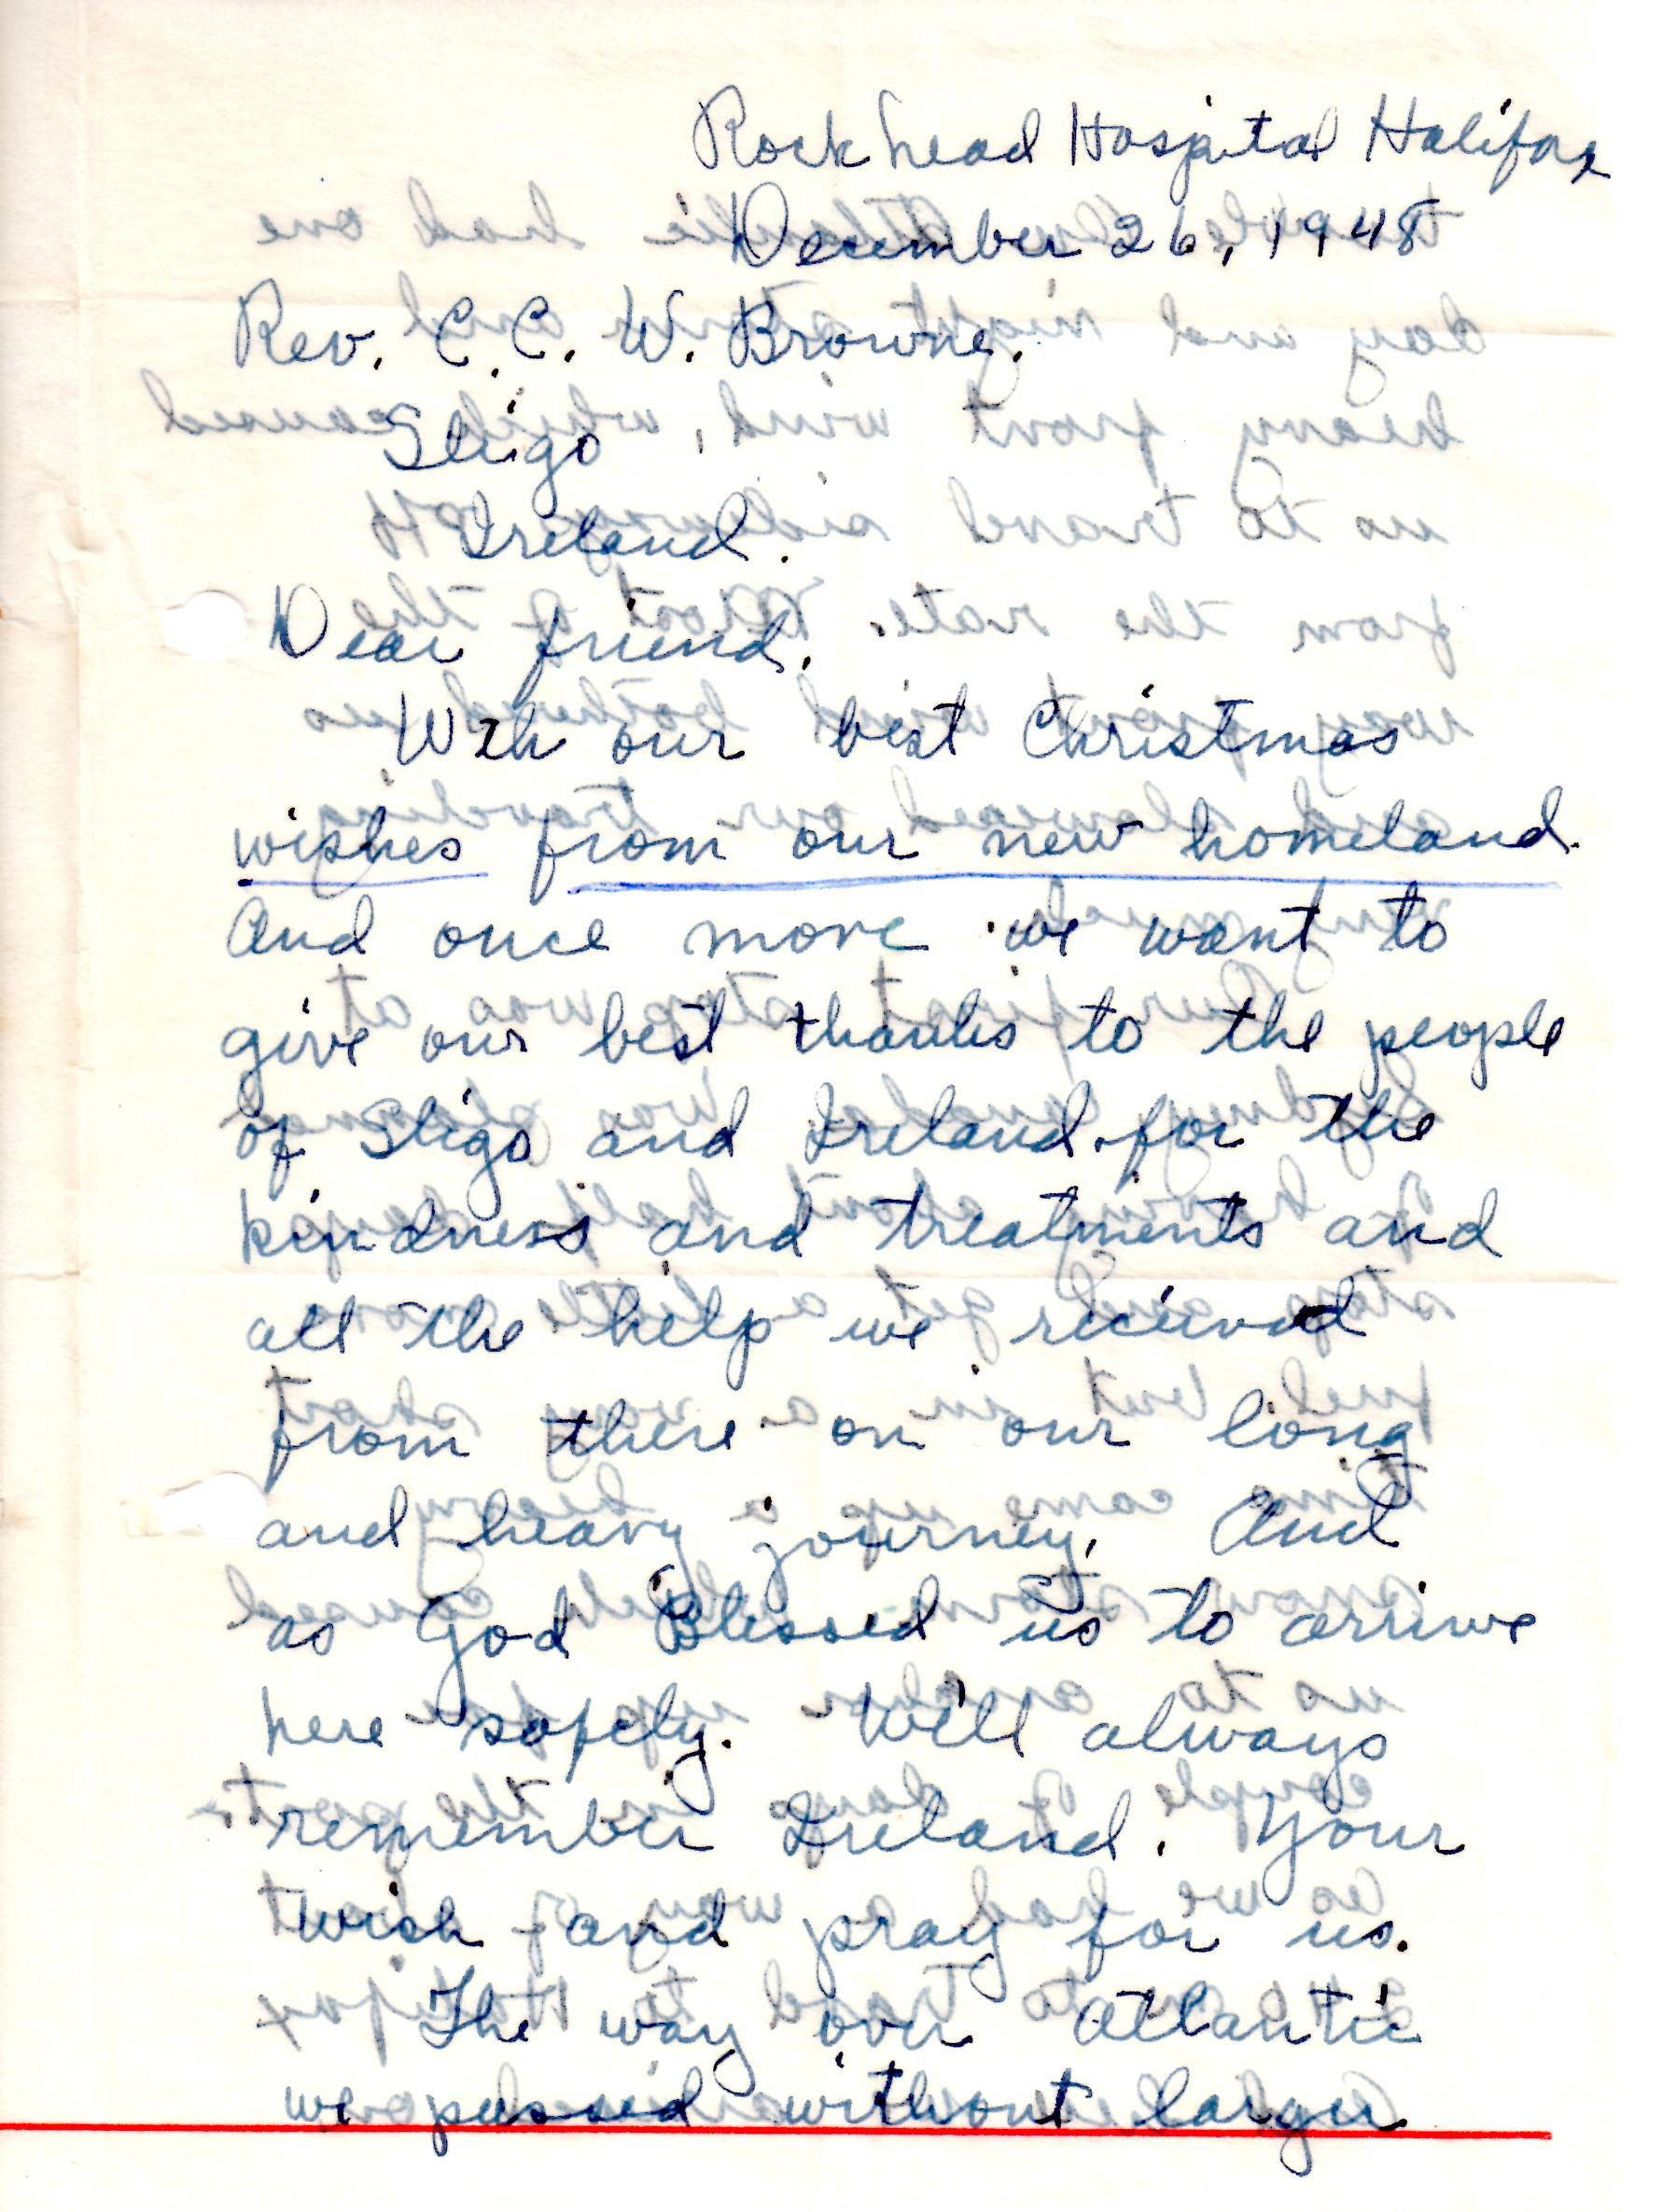 Rockhead Hospital Halifax
December 26, 1948
Rev. C. C. W. Browne.
Sligo
Ireland.
Dear friend.
With our best Christmas
wishes from our new homeland.
And once more we want to
give our best thanks to the people
of Sligo and Ireland for the
kindness and treatments and
all the help we recieved
from there on our long
and heavy journey. And
as God Blessed us to arrive
here safely. Will always
remember Ireland. Your
wish and pray for us.
The way over Atlantic
we passed without larger